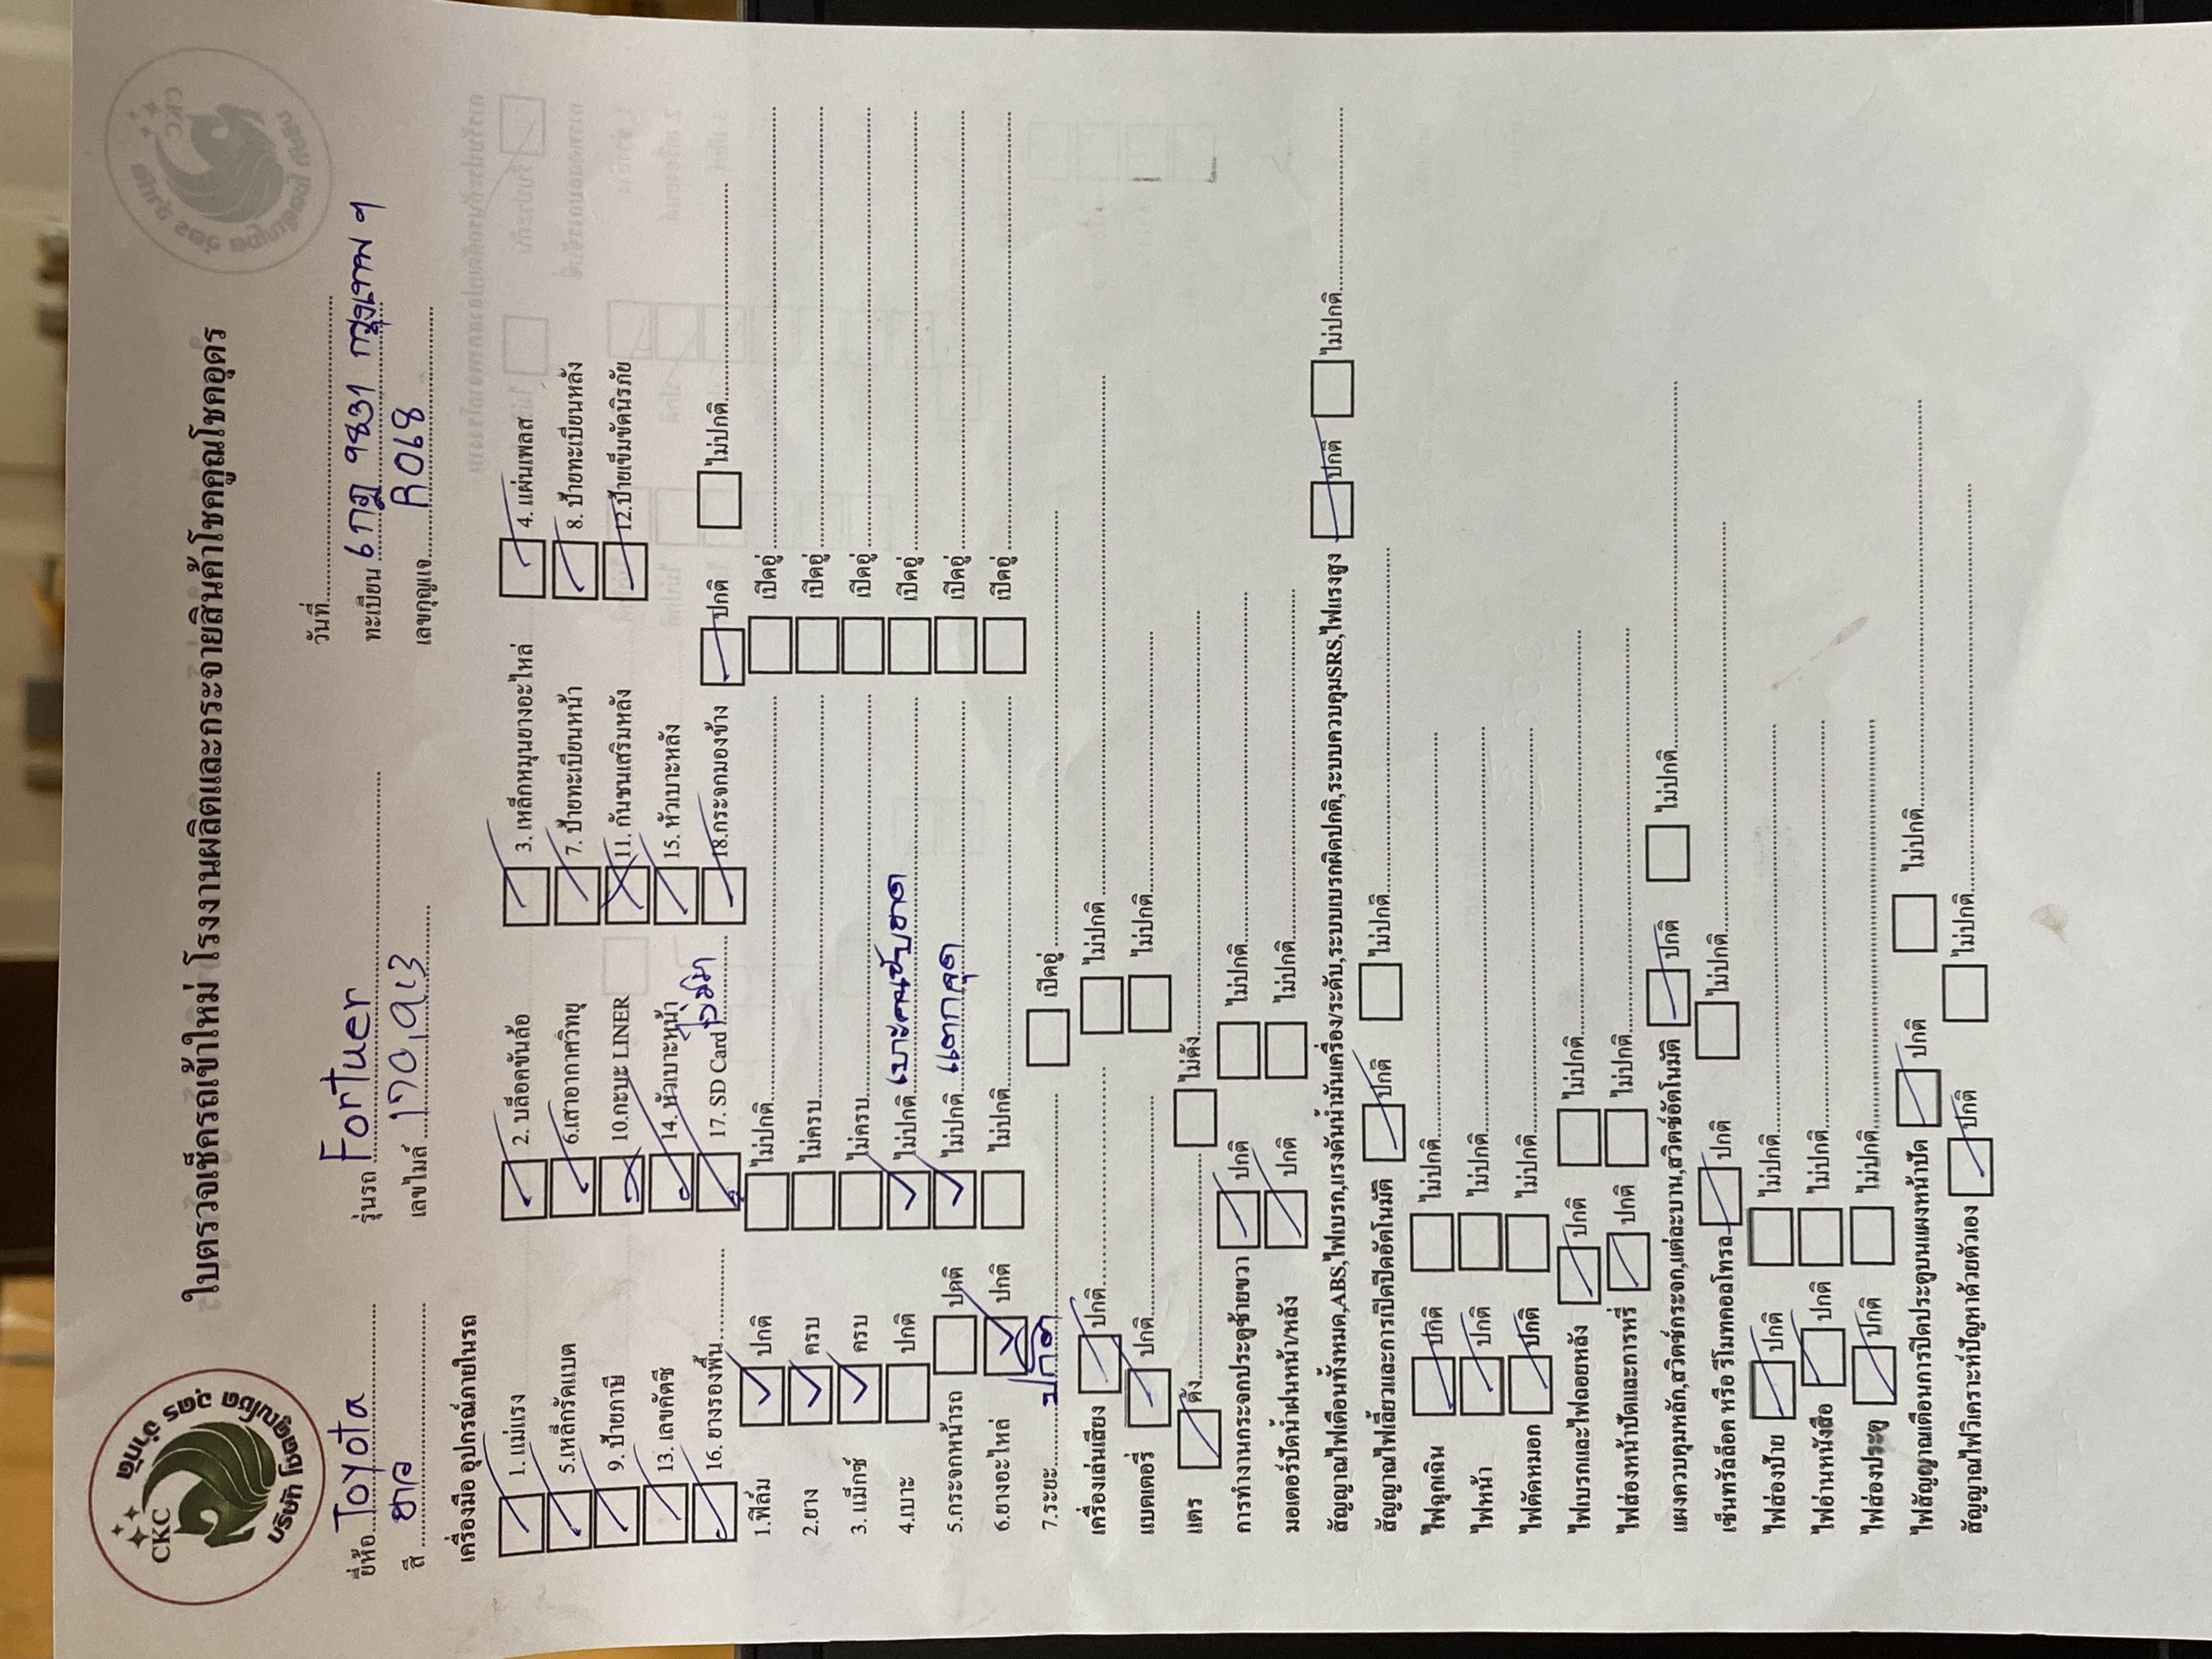 ใบตรวจเช็ครถเข้าใหม่ โรงงานผลิตและกระจายสินค้าโชคคูณโชคอุดร
CKC
บริษัท โชคคูณโชค อุดร จำกัด
วันที่
ยี่ห้อ Toyota รุ่นรถ Fortuer ทะเบียน 6 กฎ 9831 กรุงเทพ ฯ
สี ขาว เลขไมล์ 170,913 เลขกุญแจ R018
เครื่องมือ อุปกรณ์ภายในรถ
1. แม่แรง 2. บล็อคขันล้อ 3. เหล็กหมุนยางอะไหล่ 4. แผ่นเพลส
5.เหล็กรัดแบต 6.เสาอากาศวิทยุ 7. ป้ายทะเบียนหน้า 8. ป้ายทะเบียนหลัง
9. ป้ายภาษี 10.กะบะ LINER 11. กันชนเสริมหลัง 12.ป้ายเข็มขัดนิรภัย
13. เลขคัตซี 14. หัวเบาะหน้า 15. หัวเบาะหลัง
16. ยางรองพื้น 17. SD Card ไม่มี 18.กระจกมองข้าง ปกติ ไม่ปกติ
1.ฟิล์ม ปกติ ไม่ปกติ เปิดอยู่
2.ยาง ครบ ไม่ครบ เปิดอยู่
3. แม็กซ์ ครบ ไม่ครบ เปิดอยู่
4.เบาะ ปกติ ไม่ปกติ เบาะคนขับขาด เปิดอยู่
5.กระจกหน้ารถ ปกติ ไม่ปกติ แตก 1 จุด เปิดอยู่
6.ยางอะไหล่ ปกติ ไม่ปกติ เปิดอยู่
7.ระยะ ปกติ เปิดอยู่
เครื่องเล่นเสียง ปกติ ไม่ปกติ
แบตเตอรี่ ปกติ ไม่ปกติ
แตร ดัง ไม่ดัง
การทำงานกระจกประตูซ้ายขวา ปกติ ไม่ปกติ
มอเตอร์ปัดน้ำฝนหน้า/หลัง ปกติ ไม่ปกติ
สัญญาณไฟเตือนทั้งหมด,ABS,ไฟเบรก,แรงดันน้ำมันเครื่อง/ระดับ,ระบบเบรกผิดปกติ,ระบบควบคุมSRS,ไฟแรงสูง ปกติ ไม่ปกติ
สัญญาณไฟเลี้ยวและการเปิดปิดอัตโนมัติ ปกติ ไม่ปกติ
ไฟฉุกเฉิน ปกติ ไม่ปกติ
ไฟหน้า ปกติ ไม่ปกติ
ไฟตัดหมอก ปกติ ไม่ปกติ
ไฟเบรกและไฟถอยหลัง ปกติ ไม่ปกติ
ไฟส่องหน้าปัดและการหรี่ ปกติ ไม่ปกติ
แผงควบคุมหลัก,สวิตซ์กระจก,แต่ละบาน,สวิตซ์อัตโนมัติ ปกติ ไม่ปกติ
เซ็นทรัลล็อค หรือ รีโมทคอลโทรล ปกติ ไม่ปกติ
ไฟส่องป้าย ปกติ ไม่ปกติ
ไฟอ่านหนังสือ ปกติ ไม่ปกติ
ไฟส่องประตู ปกติ ไม่ปกติ
ไฟสัญญาณเตือนการปิดประตูบนแผงหน้าปัด ปกติ ไม่ปกติ
สัญญาณไฟวิเคราะห์ปัญหาด้วยตัวเอง ปกติ ไม่ปกติ